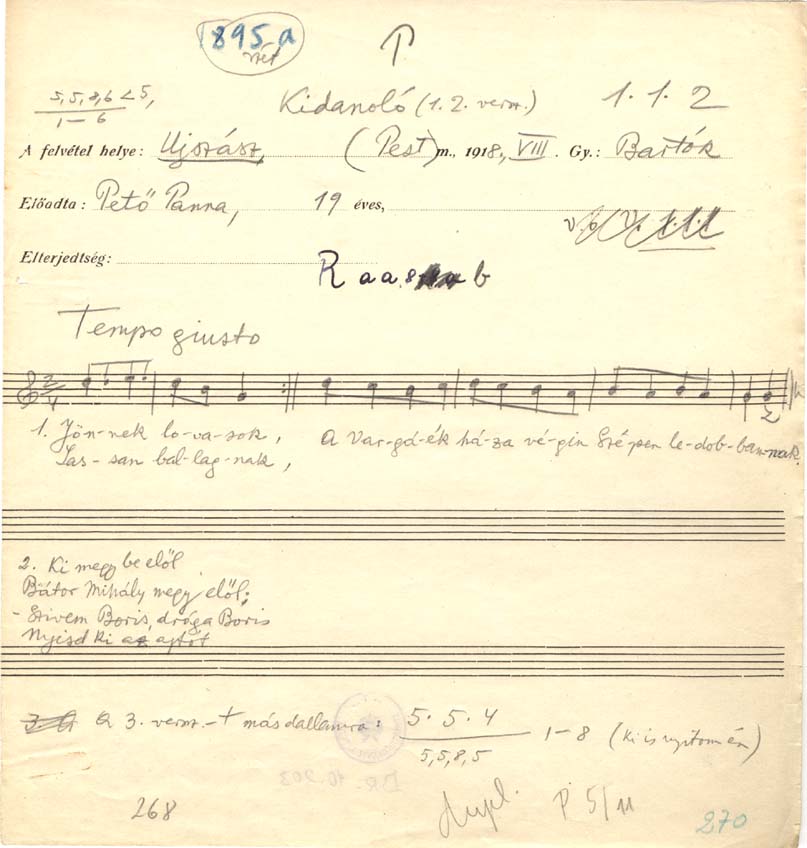 1895 a
P
5, 5, 8, 6 < 5,
1 – 6
Kidanoló (1. 2. versz.)
1. 1. 2
A felvétel helye: Ujszász, (Pest) m., 1918., VIII. Gy.: Bartók
Előadta: Pető Panna, 19 éves,
Elterjedtség:
R a a b
Tempo giusto
1. Jön-nek lo-va-sok, A Var-gá-ék há-za vé-gin Szé-pen le-dob-ban-nak.
Las-san bal-lag-nak,
2. Ki megy be elől
Bátor Mihály megy elől;
- Szivem Boris, dróga Boris
Nyisd ki az ajtót
a 3. versz.-t más dallamra: 5. 5. 4
5, 5, 8, 5
1-8 (Ki is nyitom én)
268
Dupl.
P 5/11
270